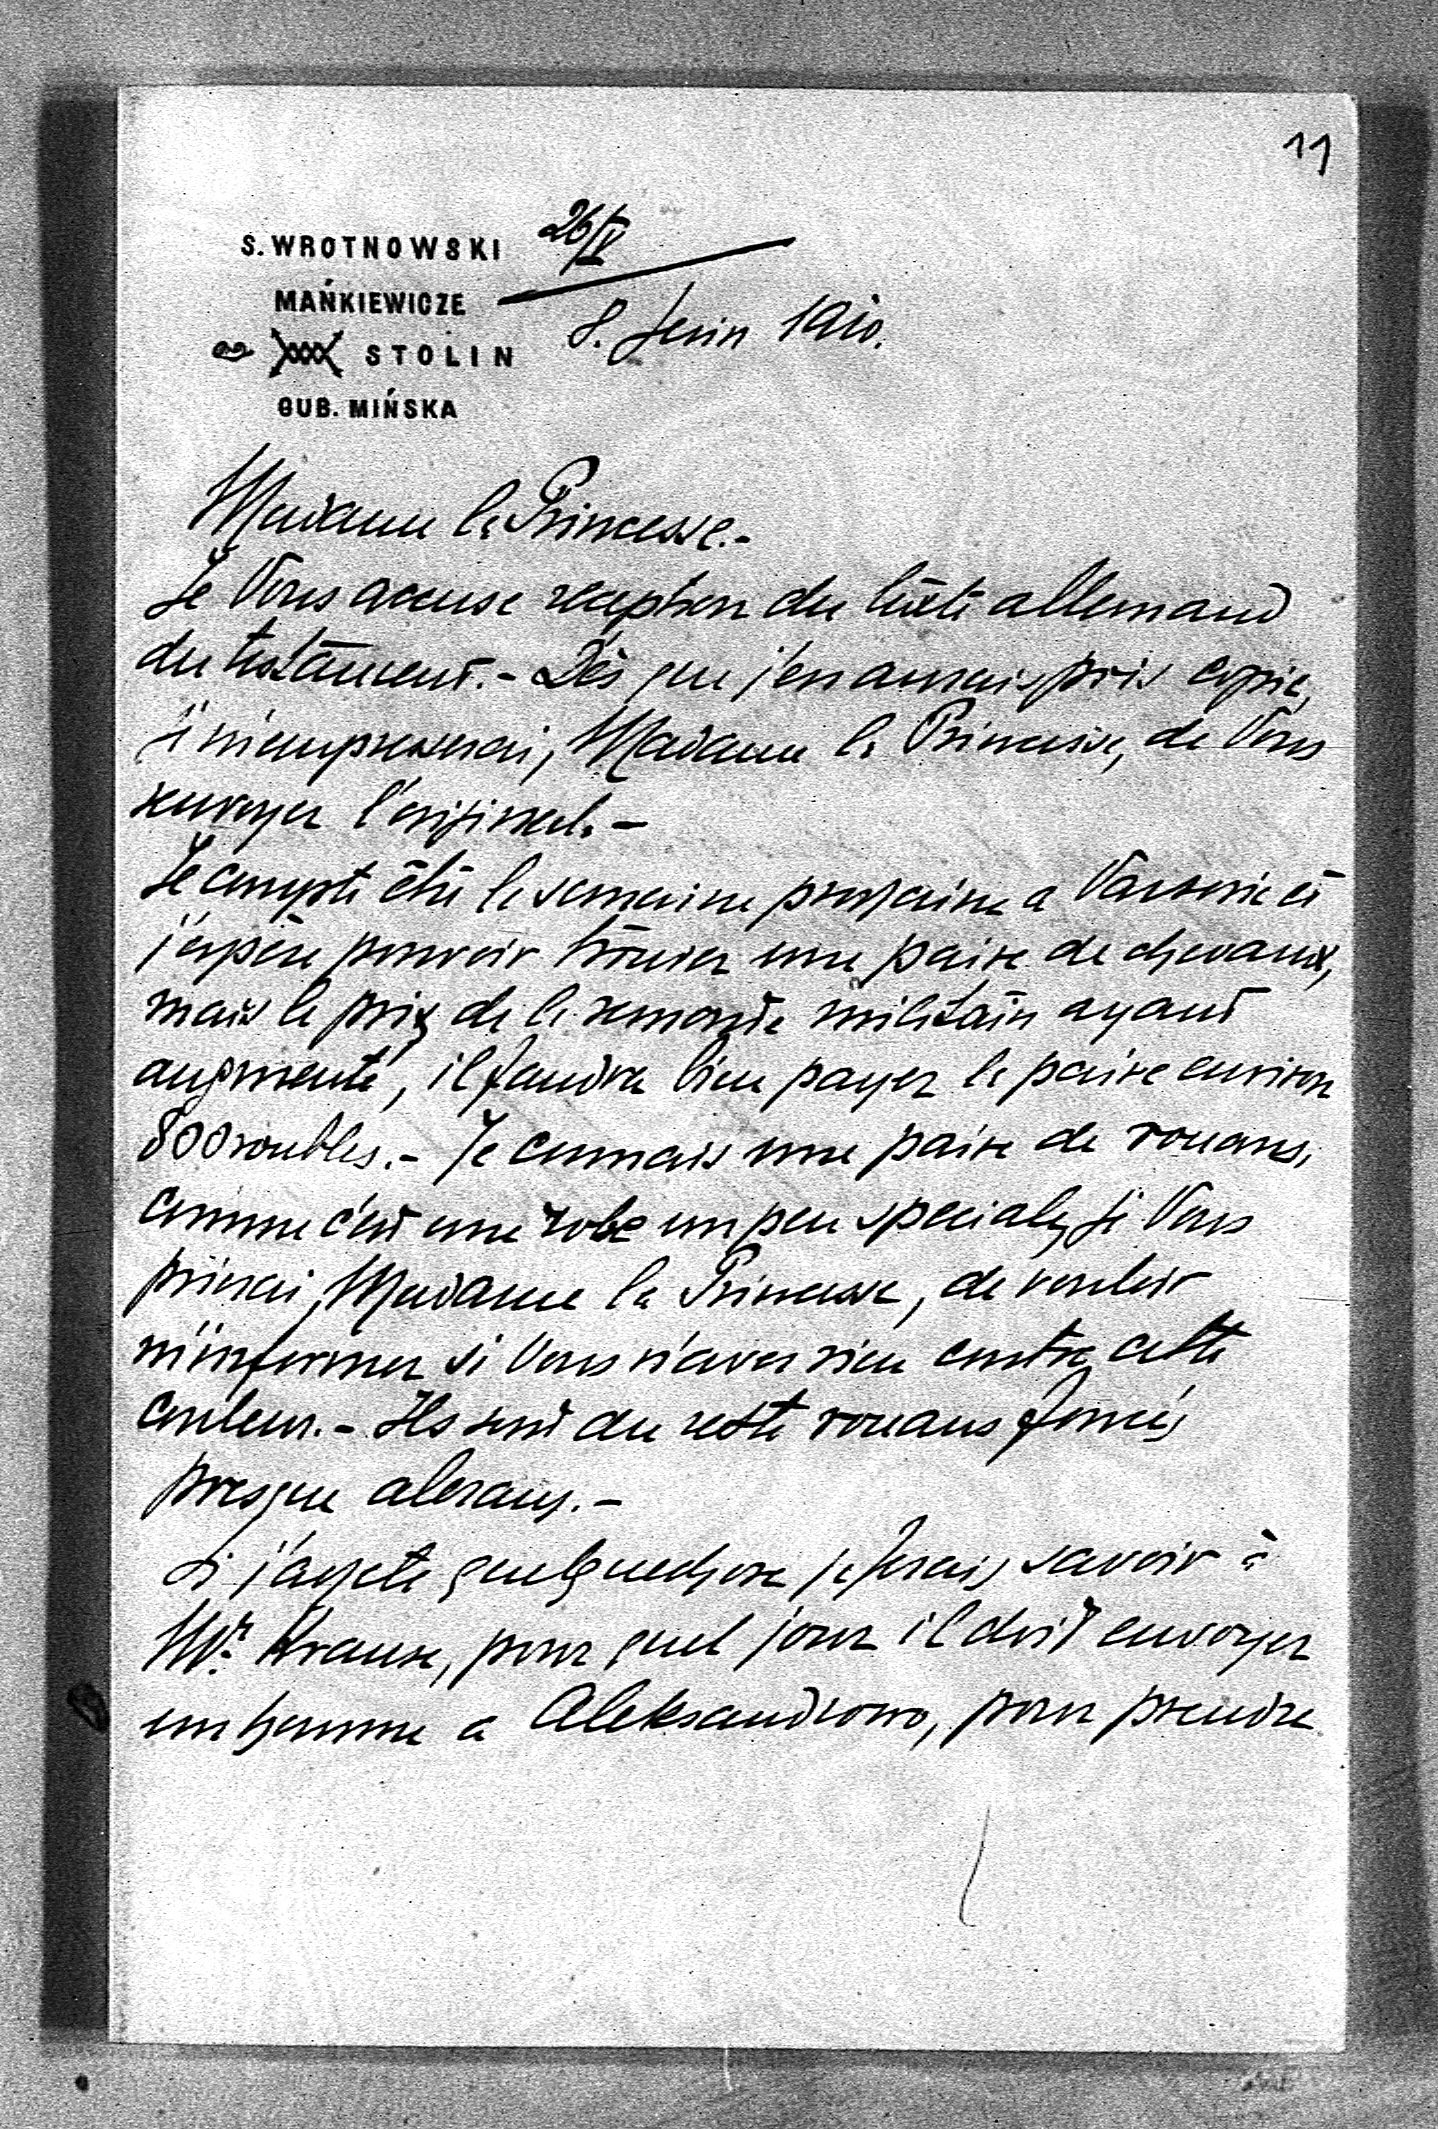 11
S. WROTNOWSKI
MAŃKIEWICZE
STOLIN
GUB. MIŃSKA
26/V
8. Juin 1910.
Madame la Princesse.-
Je Vous accuse reception du texte allemand
du testament.- Dès que j'en aurais pris copie,
je m'empresserai, Madame la Princesse, de Vous
renvoyer l'original.-
Je compte être la semaine prochaine a Varsovie et
j'espère pouvoir trouver une paire de chevaux,
mais le prix de la remonte militaire ayant
augmenté, il faudra bien payer la paire environ
800 roubles.- Je connais une paire de rouans,
comme c'est une robe un peu speciale, je Vous
prierai, Madame la Princesse, de vouloir
m'informer si Vous n'avez rien contre cette
couleur.- Ils sont du reste rouans foncés
presque alezans.-
Si j'achete quelquechose je ferais savoir à
Mr. Krause, pour quel jour il doit envoyer
un homme a Aleksandrowo, pour prendre